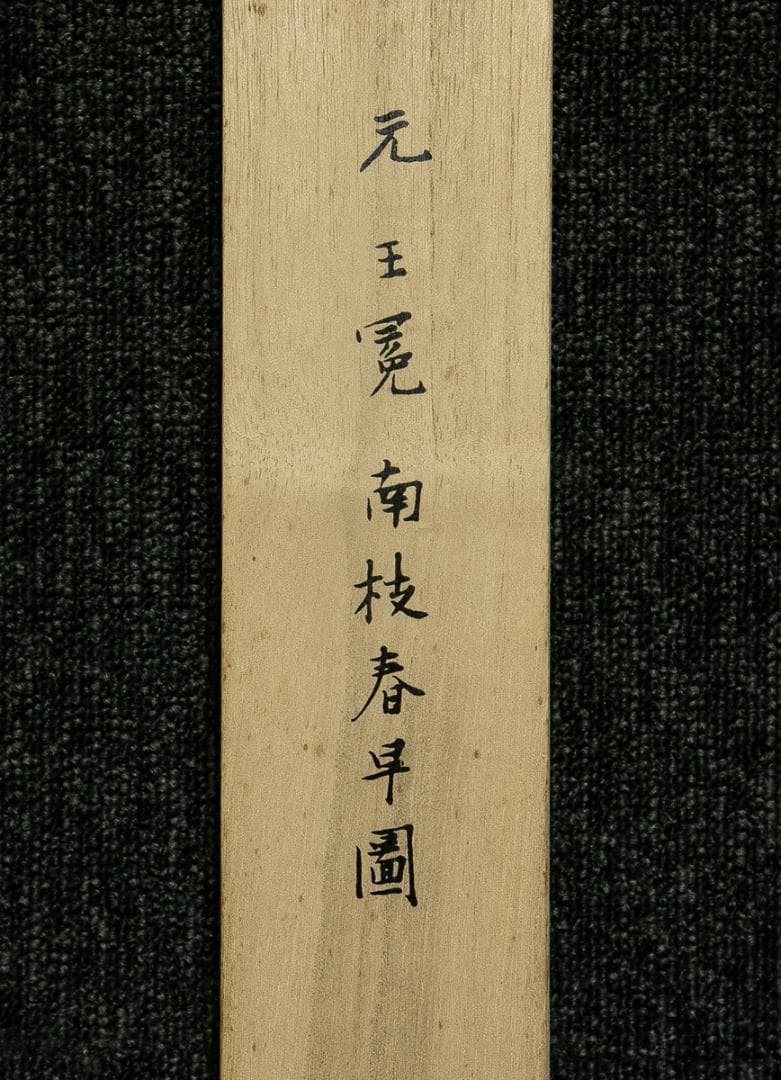 元王冕南枝春早圖